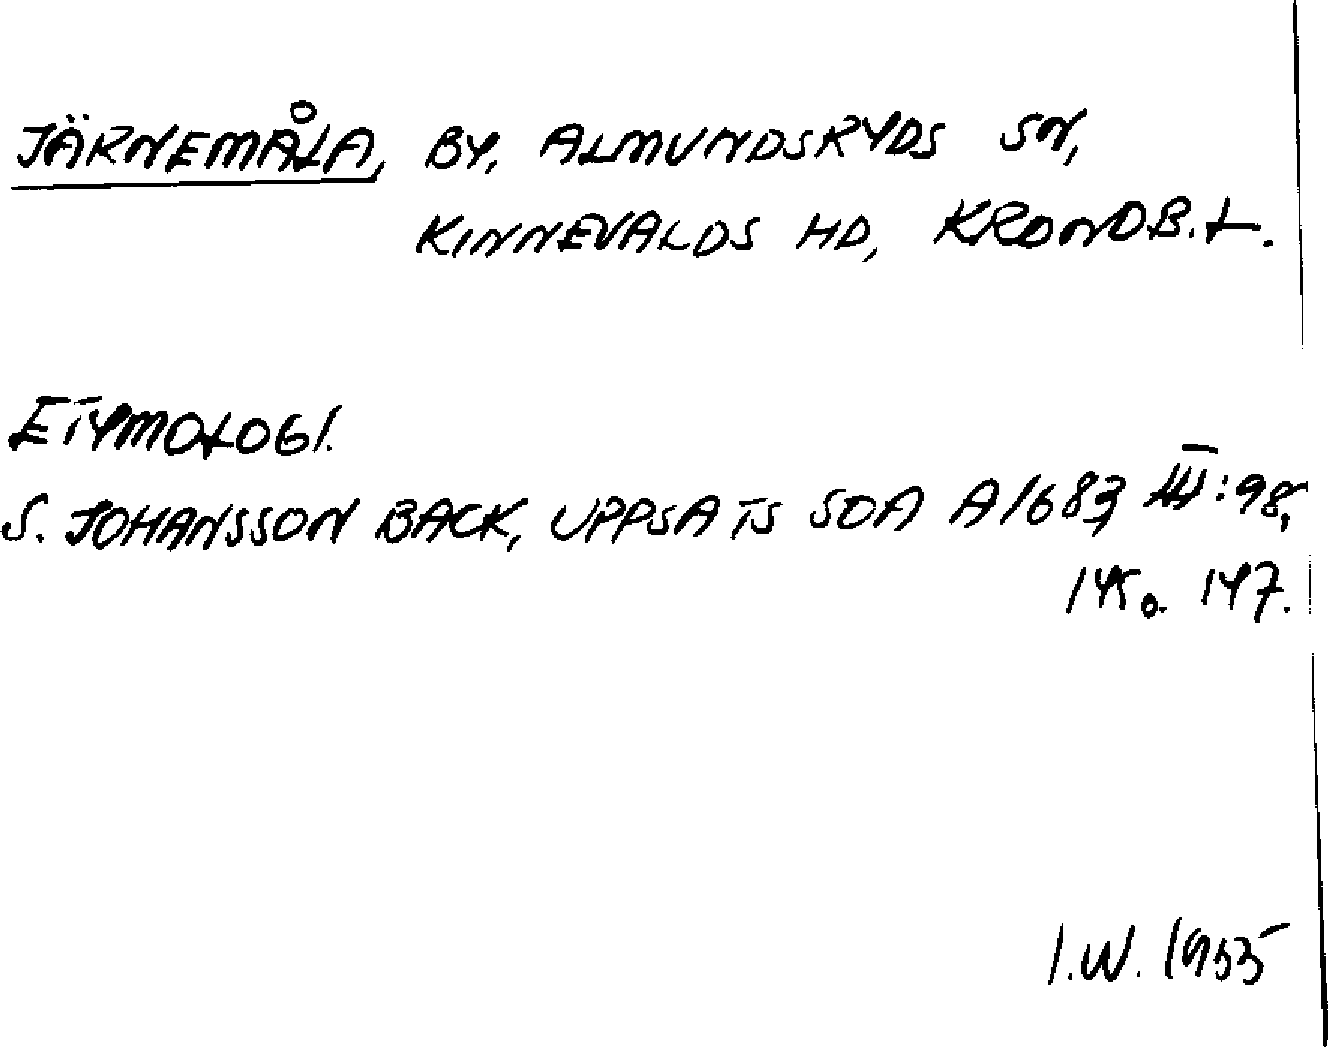 JÄRNEMÅLA, BY, ALMUNDSRYDS SN,
KINNEVALDS HD, KRONOB. L.
ETYMOLOGI.
S. JOHANSSON BACK, UPPSATS SOA A1683 III:98,
145 o. 147.
I.W. 1955